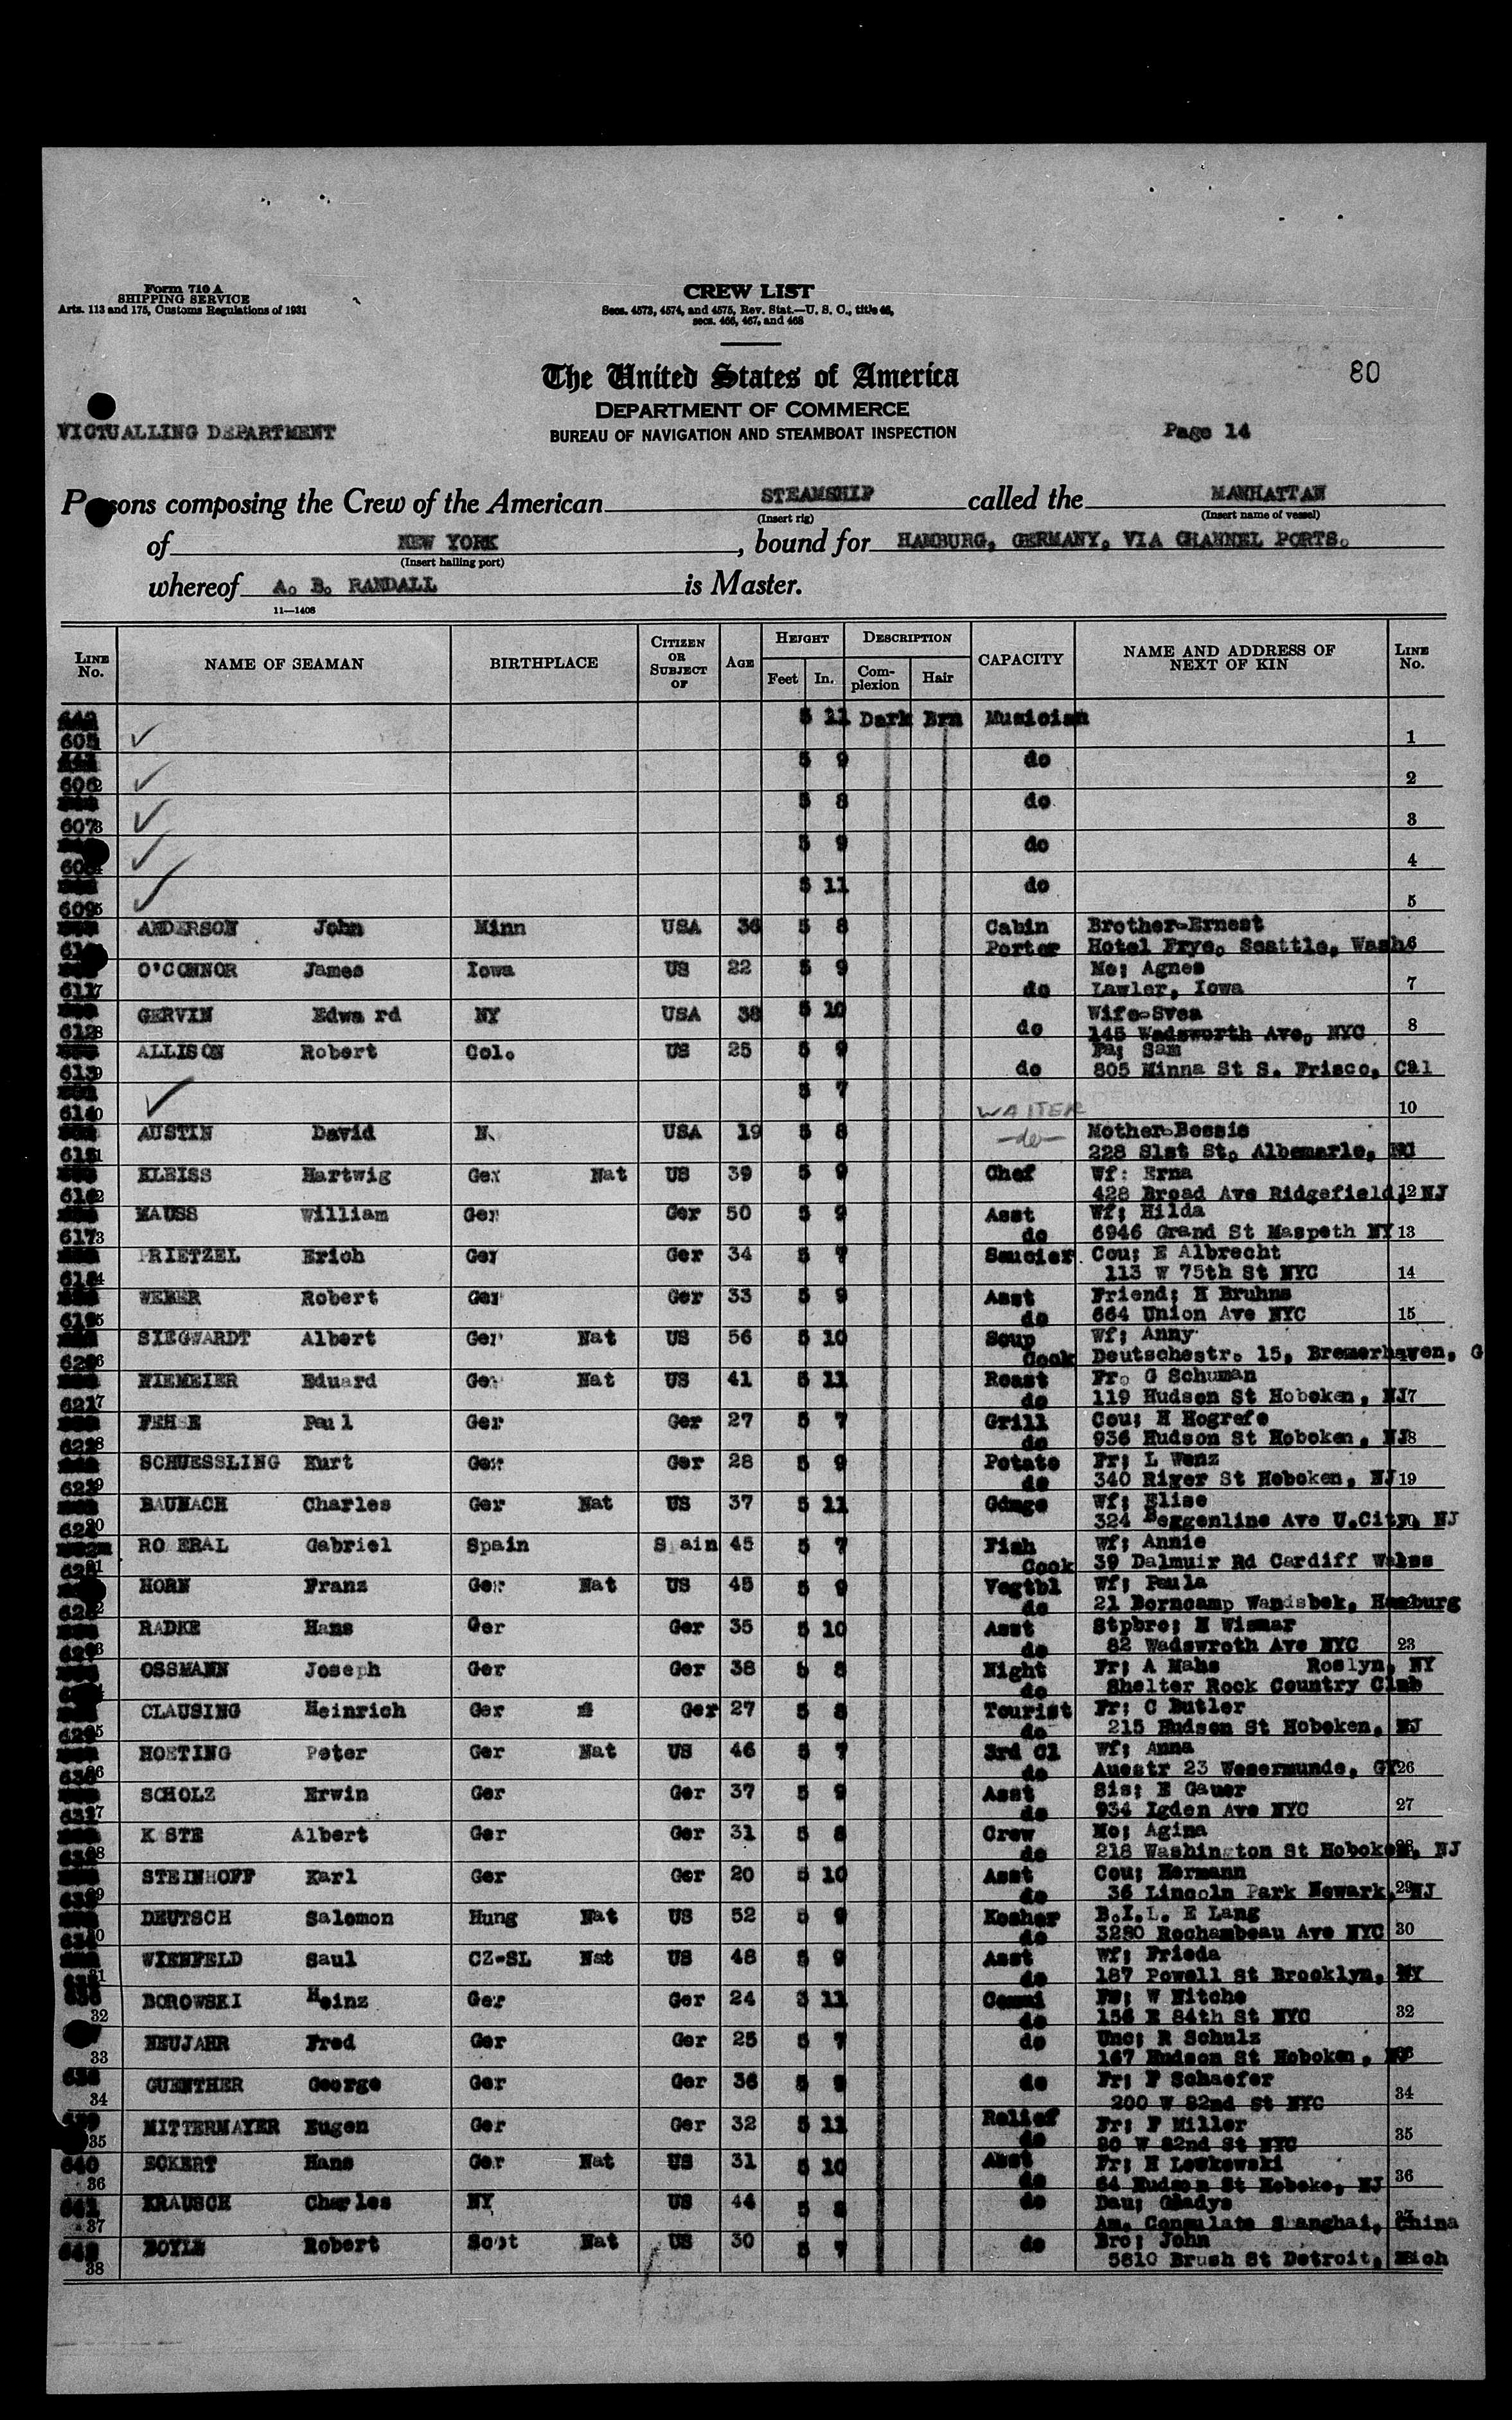 Form 710 A
SHIPPING SERVICE
Arts. 113 and 175, Customs Regulations of 1931
CREW LIST
Secs. 4573, 4574, and 4575, Rev. Stat.—U. S. C., title 46,
secs. 466, 467, and 468
The United States of America
80
DEPARTMENT OF COMMERCE
VICTUALLING DEPARTMENT
BUREAU OF NAVIGATION AND STEAMBOAT INSPECTION
Page 14
Persons composing the Crew of the American STEAMSHIP called the MANHATTAN
(Insert rig) (Insert name of vessel)
of NEW YORK, bound for HAMBURG, GERMANY, VIA CHANNEL PORTS.
(Insert hailing port)
whereof A. B. RANDALL is Master.
11—1408
LINE No. NAME OF SEAMAN BIRTHPLACE CITIZEN OR SUBJECT OF AGE HEIGHT Feet In. DESCRIPTION Complexion Hair CAPACITY NAME AND ADDRESS OF NEXT OF KIN LINE No.
5 11 Dark Brn Musician
605 1
5 9 do
606 2
5 8 do
607 3
5 9 do
4
5 11 do
609 5
ANDERSON John Minn USA 36 5 8 Cabin Brother-Ernest
Porter Hotel Frye, Seattle, Wash 6
O'CONNOR James Iowa US 22 5 9 Mo; Agnes
611 do Lawler, Iowa 7
GERVIN Edwa rd NY USA 38 5 10 Wife-Svea
612 do 145 Wadsworth Ave, NYC 8
ALLISON Robert Col. US 25 5 9 Pa; Sam
613 do 805 Minna St S. Frisco, Cal
5 7
614 WAITER 10
AUSTIN David N. USA 19 5 8 do Mother-Bessie
615 228 Slst St, Albemarle, NC
KLEISS Hartwig Ger Nat US 39 5 9 Chef Wf: Erna
616 428 Broad Ave Ridgefield, NJ 12
MAUSS William Ger Ger 50 5 9 Asst Wf; Hilda
617 do 6946 Grand St Maspeth NY 13
PRIETZEL Erich Ger Ger 34 5 7 Saucier Cou; E Albrecht
618 113 W 75th St NYC 14
WEBER Robert Ger Ger 33 5 9 Asst Friend; H Bruhns
619 do 664 Union Ave NYC 15
SIEGWARDT Albert Ger Nat US 56 5 10 Soup Wf; Anny
620 Cook Deutschestr. 15, Bremerhaven, G
NIEMEIER Eduard Ger Nat US 41 5 11 Roast Fr. G Schuman
621 do 119 Hudson St Hoboken, NJ 17
FEHSE Paul Ger Ger 27 5 7 Grill Cou; H Hogrefe
622 do 936 Hudson St Hoboken, NJ 18
SCHUESSLING Kurt Ger Ger 28 5 9 Potato Fr; L Wenz
623 do 340 River St Hoboken, NJ 19
BAUNACH Charles Ger Nat US 37 5 11 Gdmge Wf; Elise
624 324 Bergenline Ave U.City, NJ
RO ERAL Gabriel Spain S ain 45 5 7 Fish Wf; Annie
625 Cook 39 Dalmuir Rd Cardiff Wales
HORN Franz Ger Nat US 45 5 9 Vegtbl Wf; Paula
do 21 Borncamp Wandsbek, Hamburg
RADKE Hans Ger Ger 35 5 10 Asst Stpbro; H Wismar
do 82 Wadswroth Ave NYC 23
OSSMANN Joseph Ger Ger 38 5 8 Night Fr; A Mahs Roslyn, NY
do Shelter Rock Country Club
CLAUSING Heinrich Ger Ger 27 5 8 Tourist Fr; C Butler
629 do 215 Hudson St Hoboken, NJ
HOETING Peter Ger Nat US 46 5 7 3rd Cl Wf; Anna
630 do Auestr 23 Wesermunde, GY 26
SCHOLZ Erwin Ger Ger 37 5 9 Asst Sis; E Gauer
631 do 934 Igden Ave NYC 27
K STE Albert Ger Ger 31 5 8 Crew Mo; Agina
do 218 Washington St Hoboken, NJ
STEINHOFF Karl Ger Ger 20 5 10 Asst Cou; Hermann
do 36 Lincoln Park Newark, NJ 29
DEUTSCH Salomon Hung Nat US 52 5 9 Kosher B.I.L. E Lang
do 3280 Rochambeau Ave NYC 30
WIENFELD Saul CZ-SL Nat US 48 5 9 Asst Wf; Frieda
31 do 187 Powell St Brooklyn, NY
BOROWSKI Heinz Ger Ger 24 5 11 Commi W Nitche
32 do 156 E 84th St NYC 32
NEUJAHR Fred Ger Ger 25 5 7 do Unc; R Schulz
33 167 Hudson St Hoboken, NJ
GUENTHER George Ger Ger 36 5 9 do Fr; F Schaefer
34 200 W 82nd St NYC 34
MITTERMAYER Eugen Ger Ger 32 5 11 Relief Fr; F Miller
35 do 80 W 82nd St NYC 35
640 ECKERT Hans Ger Nat US 31 5 10 Asst Fr; H Leukowski
36 do 64 Hudson St Hoboke, NJ 36
641 KRAUSCH Charles NY US 44 5 8 do Dau; Gladys
37 Am. Consulate Shanghai, China
642 BOYLE Robert Scot Nat US 30 5 7 do Bro; John
38 5810 Brush St Detroit, Mich